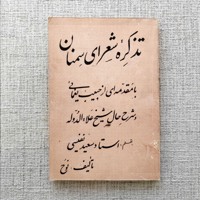 تذکرهٔ شعرای سمنان
با مقدمه‌ای از حبیب یغمائی
و شرح حال شیخ علاءالدوله
بقلم: استاد سعید نفیسی
تألیف نوح